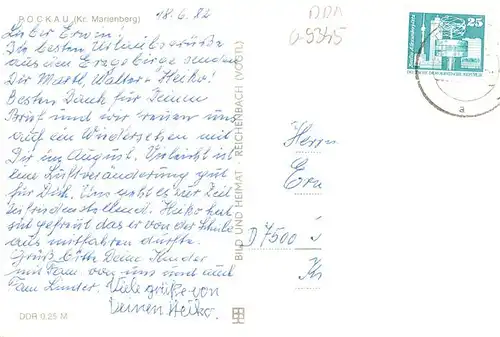 POCKAU (Kr. Marienberg)
18.6.82
DDR
6-9345
Lieber Erwin!
Die besten Urlaubsgrüße
aus dem Erzgebirge senden
Dir Martl, Walter + Heiko!
Besten Dank für Deinen
Brief und wir freuen uns
auf ein Wiedersehen mit
Dir im August. Vielleicht ist
eine Luftveränderung gut
für Dich. Uns geht es zur Zeit
zufriedenstellend. Heiko hat
sich gefreut das er von der Schule
aus mitfahren durfte.
Grüß bitte Deine Kinder
mit Fam. von uns und und
Fam. Kinder. Viele Grüße von
Deinen Heiko.
DDR 0,25 M
BILD UND HEIMAT · REICHENBACH (VOGTL)
25
DEUTSCHE DEMOKRATISCHE REPUBLIK
a
Herrn
Erw
D 7500